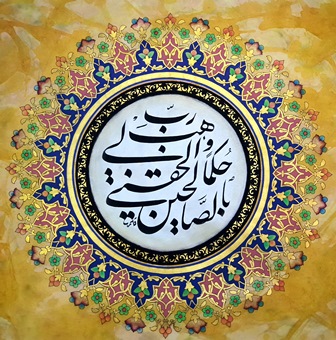 ربّ
وهب لي
حكما والحقني
بالصّالحین